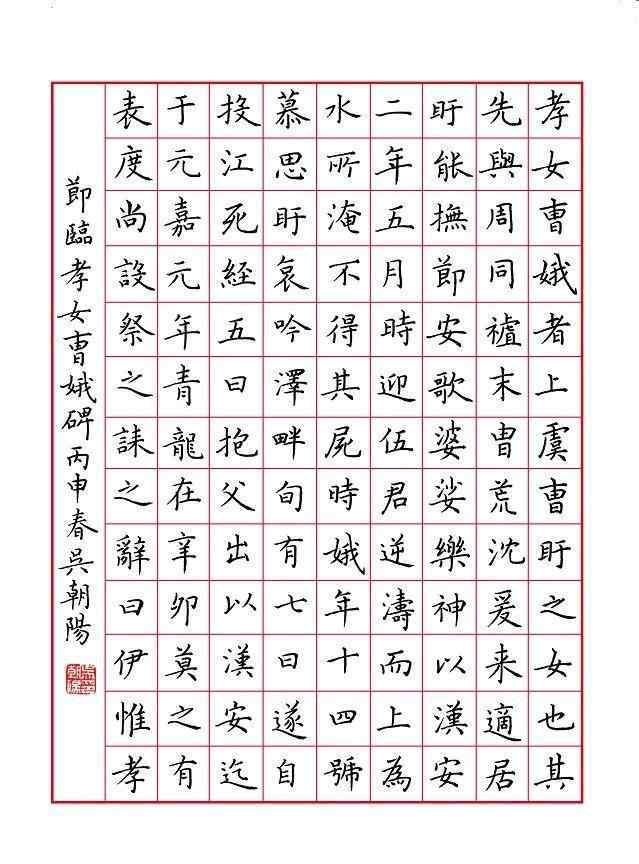 孝女曹娥者上虞曹盱之女也其
先與周同祖末冑荒沈爰来適居
盱能撫節安歌婆娑樂神以漢安
二年五月時迎伍君逆濤而上為
水所淹不得其屍時娥年十四號
慕思盱哀吟澤畔旬有七日遂自
投江死經五日抱父出以漢安迄
于元嘉元年青龍在辛卯莫之有
表度尚設祭之誄之辭曰伊惟孝
節臨孝女曹娥碑丙申春吳朝陽